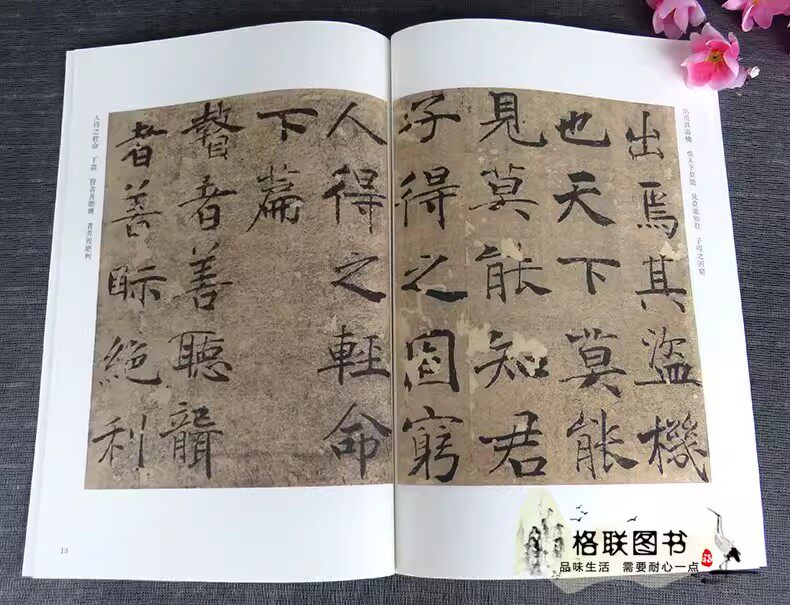 出焉其盜機 也天下莫能 見莫能知君 子得之固窮
出焉其盜機
也天下莫能
見莫能知君
子得之固窮
人得之輕命
下篇
瞽者善聽聾
者善眎絕利
人得之輕命 下篇 瞽者善聽聾 者善視絕利
13
格联图书
品味生活 需要耐心一点